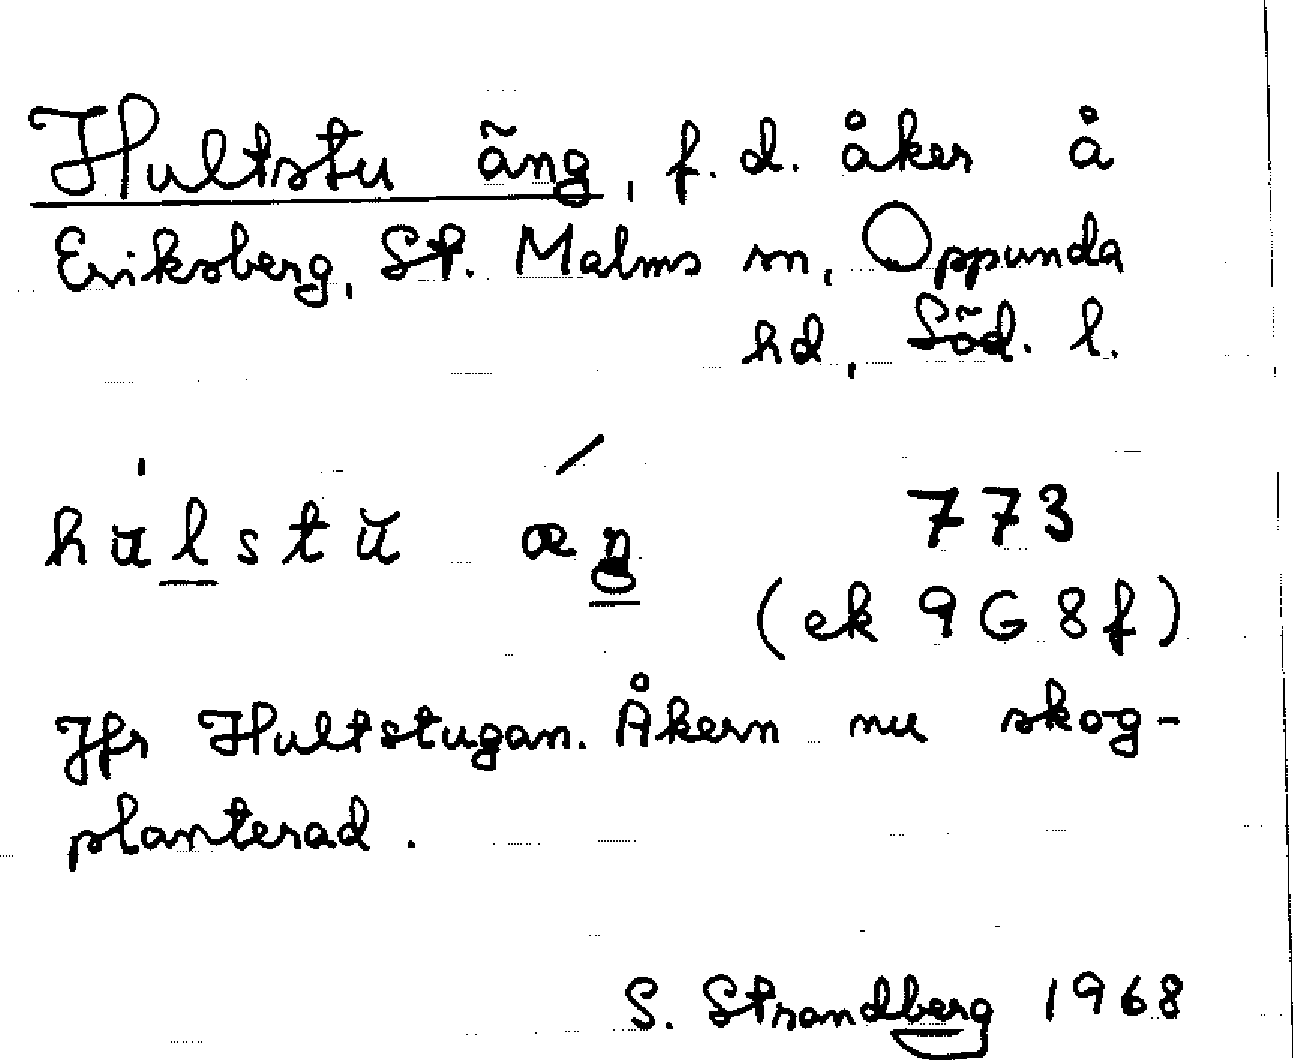 Hultstu äng, f.d. åker å
Eriksberg, St. Malms sn, Oppunda
hd, Söd. l.
hu̇lstŭ æŋ́ 773
(ek 9G8f)
Jfr Hultstugan. Åkern nu skog-
planterad.
S. Strandberg 1968